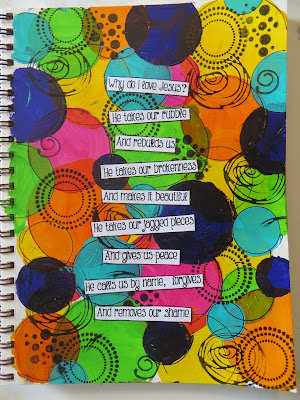 Why do I love Jesus?
He takes our rubble
And rebuilds us
He takes our brokenness
And makes it beautiful
He takes our jagged pieces
And gives us peace
He calls us by name, forgives
And removes our shame